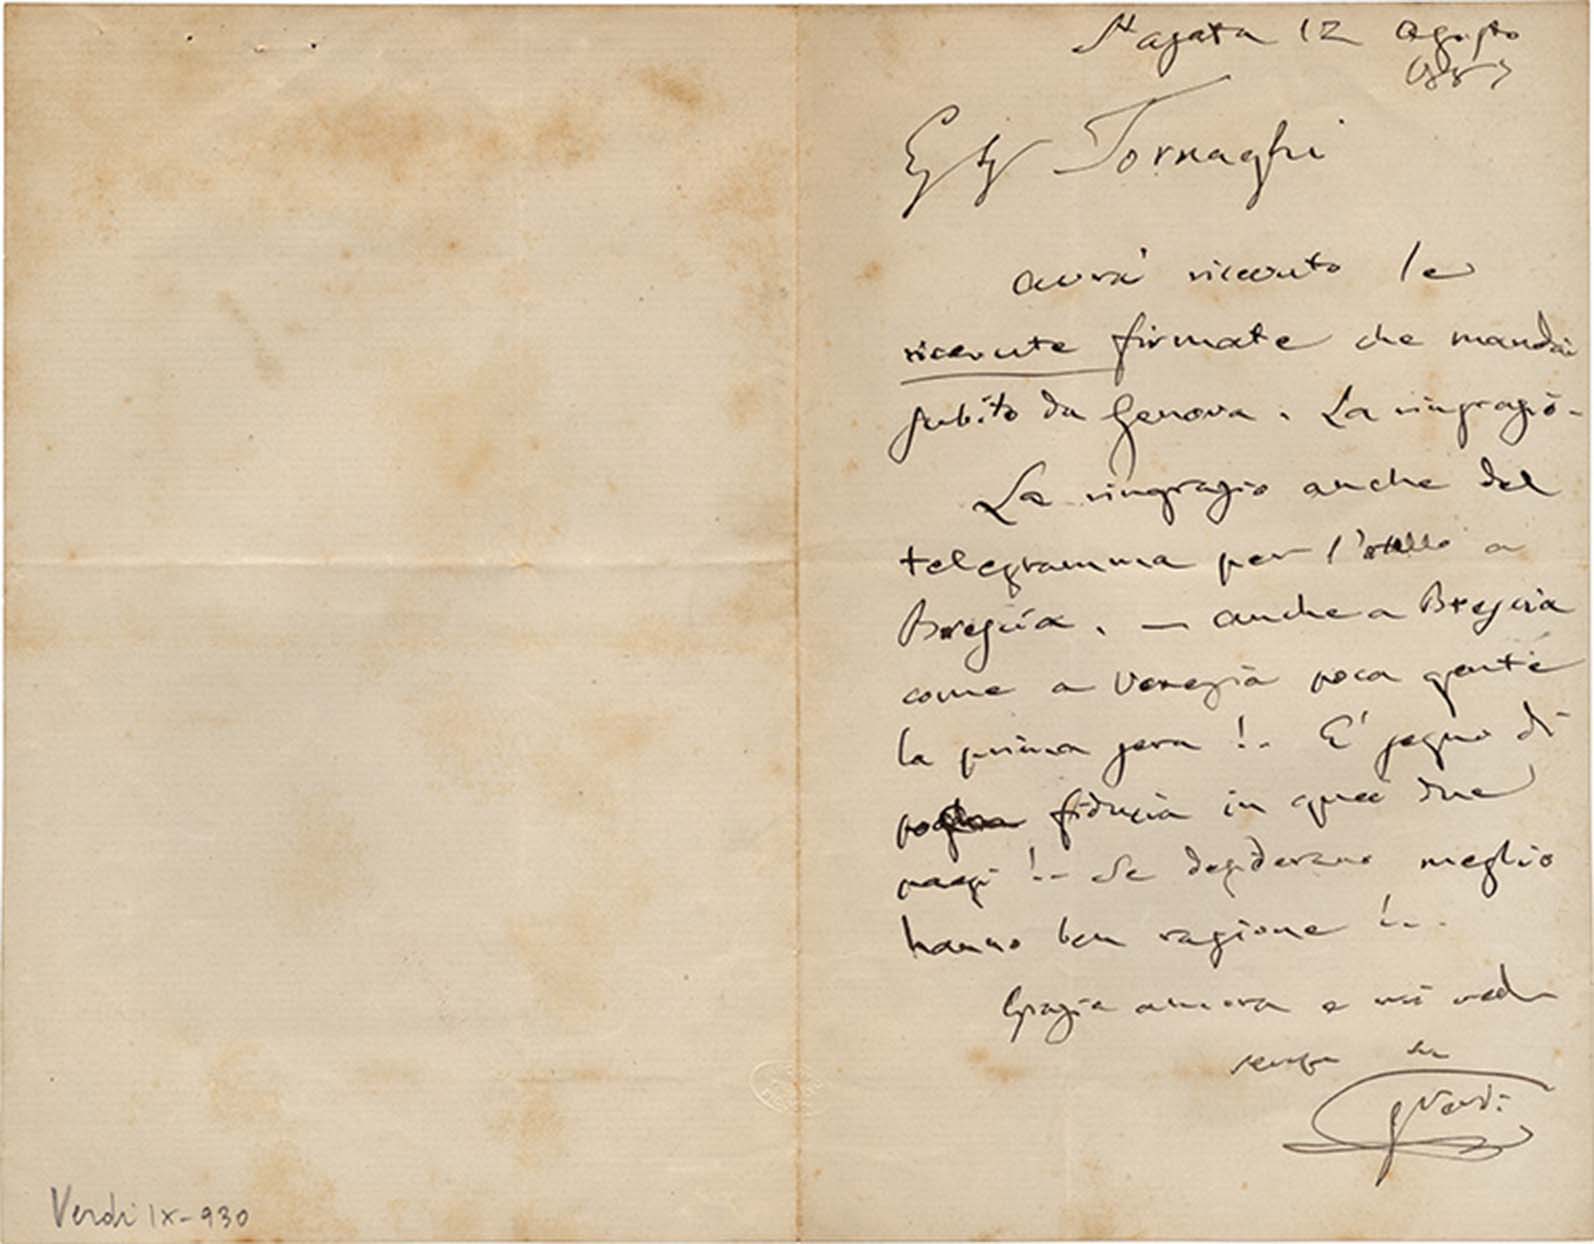 St Agata 12 Agosto
1887
Eg Sig Tornaghi
Avrà ricevuto le
ricevute firmate che mandai
subito da Genova. La ringrazio -
La ringrazio anche del
telegramma per l'Otello a
Brescia. — Anche a Brescia
come a Venezia poca gente
la prima sera!.. E' segno di
poca fiducia in quei due
paesi!.. Se desiderano meglio
hanno ben ragione!..
Grazie ancora e mi creda
sempre Suo
G Verdi
Verdi IX-930